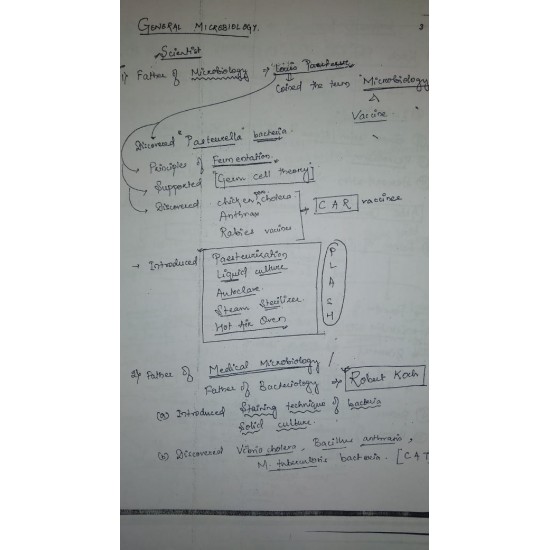 GENERAL MICROBIOLOGY.
Scientist
1) Father of Microbiology → Louis
Coined the term "Microbiology
&
Vaccine
Discovered "Pasteurella" bacteria.
Principles of Fermentation.
Supported [Germ cell theory]
Discovered chicken cholera
Anthrax → CAR vaccines
Rabies vaccines
→ Introduced Pasteurization
Liquid culture
Autoclave
Steam Sterilizer
Hot Air Oven
P
L
A
S
H
2) Father of Medical Microbiology
Father of Bacteriology → Robert Koch
(a) Introduced Staining technique of bacteria
Solid culture.
(b) Discovered Vibrio cholera, Bacillus anthracis,
M. tuberculosis bacteria. [CAT